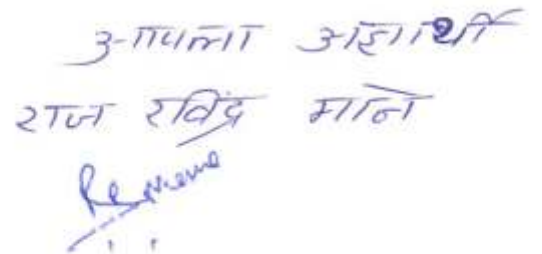 आपला आज्ञार्थी
राज रविंद्र माने